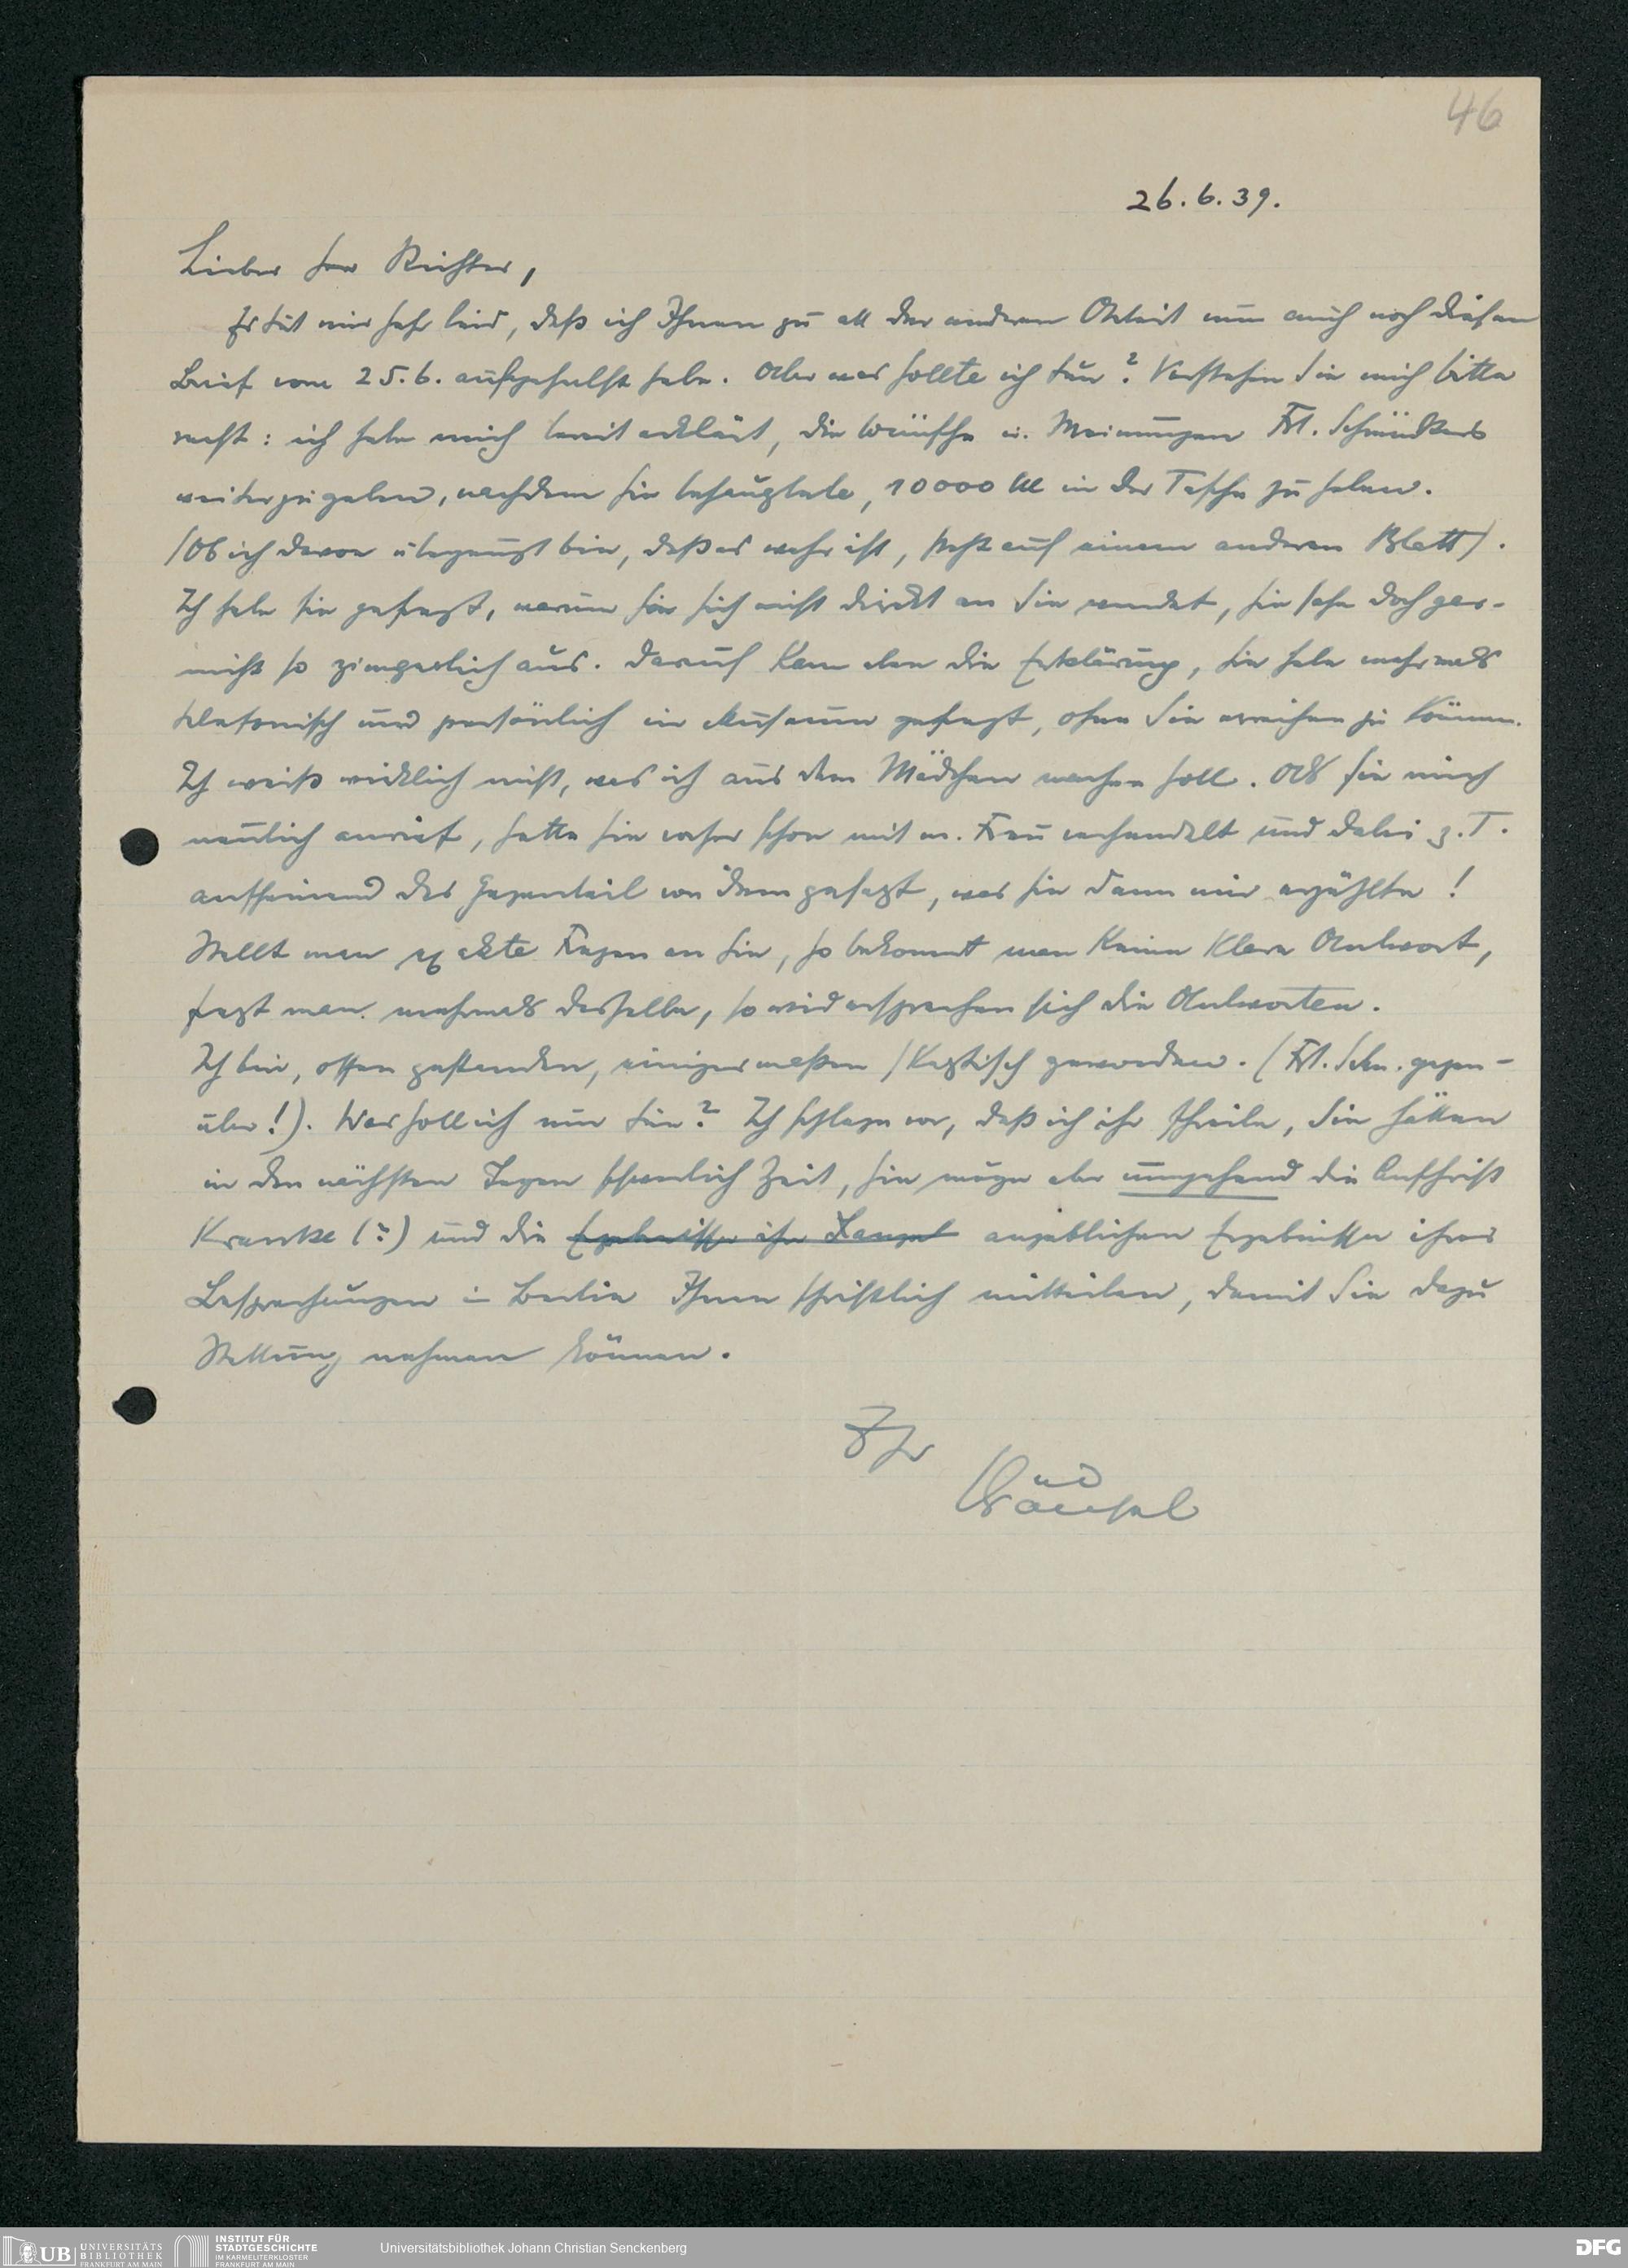 46
26.6.39.
Lieber Herr Richter,
Es tut mir sehr leid, daß ich Ihnen zu all der anderen Arbeit nun auch noch diesen
Brief vom 25.6. aufgehalst habe. Aber was sollte ich tun? Verstehen Sie mich bitte
recht: ich habe mich bereit erklärt, die Wünsche u. Meinungen Frl. Schmückers
weiterzugeben, nachdem sie behauptete, 10000 M in der Tasche zu haben.
(Ob ich davon überzeugt bin, daß es wahr ist, steht auf einem anderen Blatt).
Ich habe sie gefragt, warum sie sich nicht direkt an Sie wendet, sie sehe doch gar-
nicht so zimperlich aus. Darauf kam eben die Erklärung, sie habe mehrmals
telefonisch und persönlich im Museum gefragt, ohne Sie erreichen zu können.
Ich weiß wirklich nicht, was ich aus dem Mädchen machen soll. Als sie mich
neulich anrief, hatte sie vorher schon mit m. Frau verhandelt und dabei z.T.
anscheinend das Gegenteil von dem gesagt, was sie dann mir erzählte!
Stellt man exakte Fragen an sie, so bekommt man keine klare Antwort,
fragt man mehrmals dasselbe, so widersprechen sich die Antworten.
Ich bin, offen gestanden, einigermaßen skeptisch geworden. (Frl. Schm. gegen-
über!). Was soll ich nun tun? Ich schlage vor, daß ich ihr schreibe, Sie hätten
in den nächsten Tagen schwerlich Zeit, sie möge aber umgehend die Anschrift
Krancke (?) und die Ergebnisse ihrer angeblichen Ergebnisse ihrer
Besprechungen in Berlin Ihnen schriftlich mitteilen, damit Sie dazu
Stellung nehmen können.
Ihr
Kräusel
UB UNIVERSITÄTS
BIBLIOTHEK
FRANKFURT AM MAIN
INSTITUT FÜR
STADTGESCHICHTE
IM KARMELITERKLOSTER
FRANKFURT AM MAIN
Universitätsbibliothek Johann Christian Senckenberg
DFG